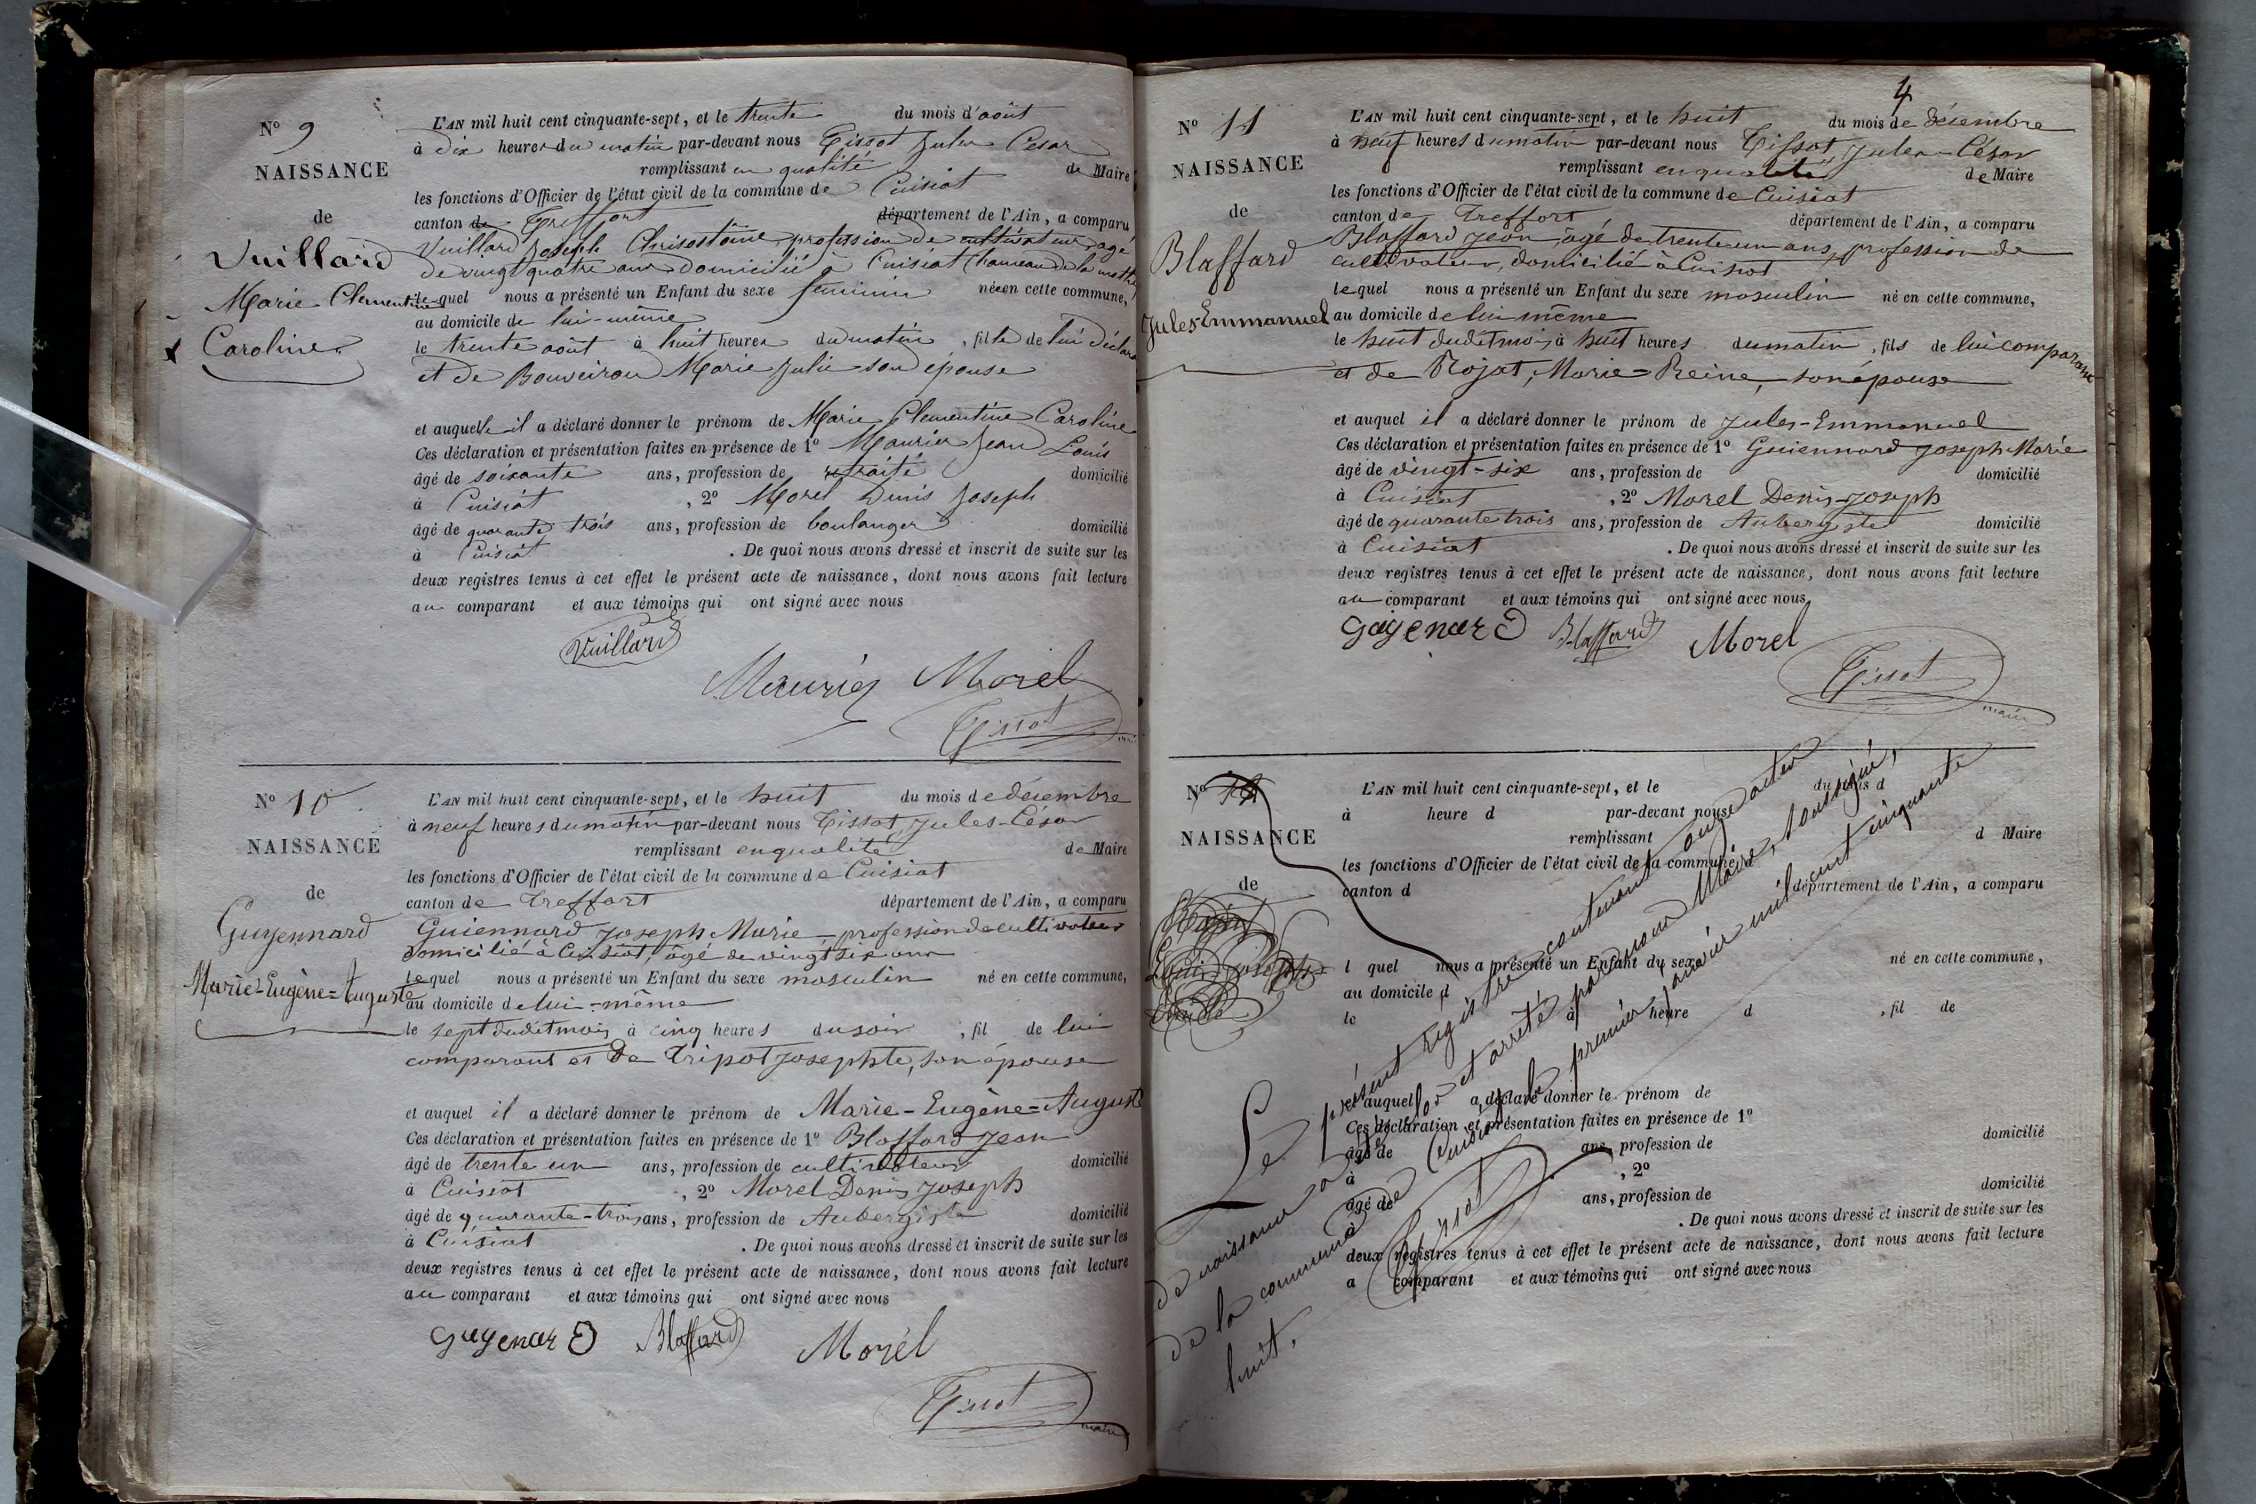 No 9
NAISSANCE
de
Vuillard
Marie Clementine
Caroline
L'AN mil huit cent cinquante-sept, et le trente du mois d'août
à dix heures du matin par-devant nous Tissot Jules Cesar
remplissant en qualité de Maire
les fonctions d'Officier de l'état civil de la commune de Cuisiat
canton de Treffort département de l'Ain, a comparu
Vuillard Joseph Chrisostôme, profession de cultivateur, agé
de vingt quatre ans domicilié à Cuisiat (hameau de la
lequel nous a présenté un Enfant du sexe féminin née en cette commune,
au domicile de lui-même
le trente août à huit heures du matin, fille de lui déclarant
et de Bouveiron Marie Julie son épouse
et auquelle il a déclaré donner le prénom de Marie Clementine Caroline
Ces déclaration et présentation faites en présence de 1o Maurier Jean Louis
âgé de soixante ans, profession de retraité domicilié
à Cuisiat, 2o Morel Denis Joseph
âgé de quarante trois ans, profession de boulanger domicilié
à Cuisiat. De quoi nous avons dressé et inscrit de suite sur les
deux registres tenus à cet effet le présent acte de naissance, dont nous avons fait lecture
au comparant et aux témoins qui ont signé avec nous
Vuillard
Maurier Morel
Tissot
No 10
NAISSANCE
de
Guyennard
Marie-Eugène=Auguste
L'AN mil huit cent cinquante-sept, et le huit du mois de décembre
à neuf heures du matin par-devant nous Tissot, Jules-César
remplissant en qualité de Maire
les fonctions d'Officier de l'état civil de la commune de Cuisiat
canton de Treffort département de l'Ain, a comparu
Guiennard Joseph Marie profession de cultivateur
domicilié à Cuisiat, âgé de vingt six ans
lequel nous a présenté un Enfant du sexe masculin né en cette commune,
au domicile de lui-même
le sept dudit mois, à cinq heures du soir, fil de lui
comparant et de Tripot Josephte, son épouse
et auquel il a déclaré donner le prénom de Marie-Eugène=Auguste
Ces déclaration et présentation faites en présence de 1o Blaffard Jean
âgé de trente un ans, profession de cultivateur domicilié
à Cuisiat, 2o Morel Denis Joseph
âgé de quarante-trois ans, profession de Aubergiste domicilié
à Cuisiat. De quoi nous avons dressé et inscrit de suite sur les
deux registres tenus à cet effet le présent acte de naissance, dont nous avons fait lecture
au comparant et aux témoins qui ont signé avec nous
Guyenard Blaffard Morel
Tissot
maire
4
No 11
NAISSANCE
de
Blaffard
Jules Emmanuel
L'AN mil huit cent cinquante-sept, et le huit du mois de décembre
à neuf heures du matin par-devant nous Tissot Jules-César
remplissant en qualité de Maire
les fonctions d'Officier de l'état civil de la commune de Cuisiat
canton de Treffort département de l'Ain, a comparu
Blaffard Jean, âgé de trente un ans, profession de
cultivateur, domicilié à Cuisiat
lequel nous a présenté un Enfant du sexe masculin né en cette commune,
au domicile de lui même
le huit dudit mois, à huit heures du matin, fils de lui comparant
et de Rojat, Marie=Reine, son épouse
et auquel il a déclaré donner le prénom de Jules-Emmanuel
Ces déclaration et présentation faites en présence de 1o Guiennard Joseph Marie
âgé de vingt-six ans, profession de domicilié
à Cuisiat, 2o Morel Denis-Joseph
âgé de quarante trois ans, profession de Aubergiste domicilié
à Cuisiat. De quoi nous avons dressé et inscrit de suite sur les
deux registres tenus à cet effet le présent acte de naissance, dont nous avons fait lecture
au comparant et aux témoins qui ont signé avec nous
Guyenard Blaffard Morel
Tissot
maire
No 12
NAISSANCE
de
L'AN mil huit cent cinquante-sept, et le du mois d
à heure d par-devant nous
remplissant d Maire
les fonctions d'Officier de l'état civil de la commune d
canton d département de l'Ain, a comparu
l quel nous a présenté un Enfant du sexe né en cette commune,
au domicile d
le à heure d, fil de
et auquel a déclaré donner le prénom de
Ces déclaration et présentation faites en présence de 1o
âgé de ans, profession de domicilié
à, 2o
âgé de ans, profession de domicilié
à. De quoi nous avons dressé et inscrit de suite sur les
deux registres tenus à cet effet le présent acte de naissance, dont nous avons fait lecture
a comparant et aux témoins qui ont signé avec nous
Le présent registre contenant onze actes
de naissance a été clos et arrêté par nous Maire, soussigné,
de la commune de Cuisiat le premier janvier mil huit cent cinquante
huit.
Tissot